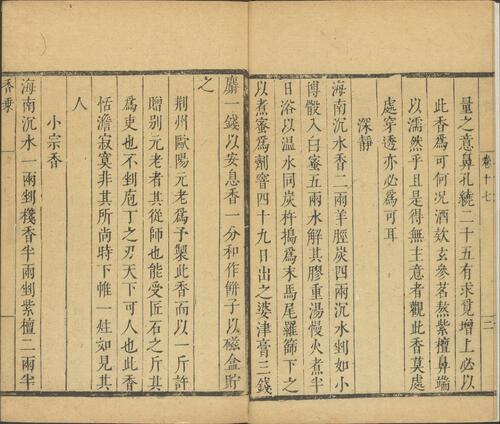 量之意鼻孔繞二十五有求覓增上必以
此香爲可何况酒欵玄參茗熬紫檀鼻端
以濡然乎且是得無主意者觀此香莫處
處穿透亦必爲可耳
深靜
海南沉水香二兩羊脛炭四兩沉水剉如小
博骰入白蜜五兩水解其膠重湯慢火煮半
日浴以温水同炭杵搗爲末馬尾羅篩下之
以煮蜜爲劑窨四十九日出之婆津膏三錢
卷十七
二
麝一錢以安息香一分和作餅子以磁盒貯
之
荆州歐陽元老爲予製此香而以一斤許
贈别元老者其從師也能受匠石之斤其
爲吏也不剉庖丁之刃天下可人也此香
恬澹寂寞非其所尚時下帷一炷如見其
人
小宗香
海南沉水一兩剉棧香半兩剉紫檀二兩半
香乗